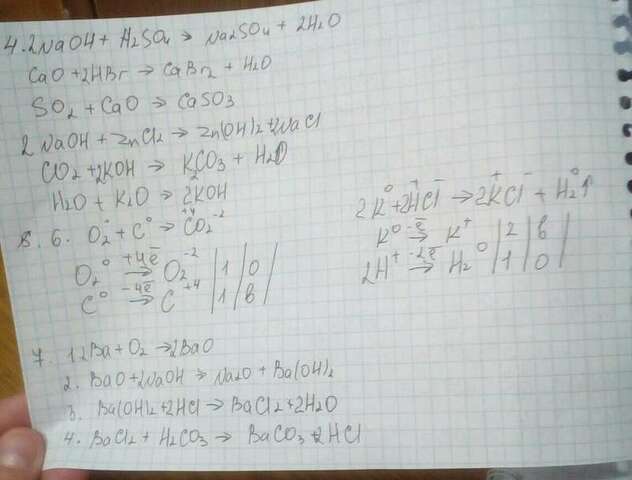 4. 2NaOH + H2SO4 → Na2SO4 + 2H2O
CaO + 2HBr → CaBr2 + H2O
SO2 + CaO → CaSO3
2NaOH + ZnCl2 → Zn(OH)2 + 2NaCl
CO2 + 2KOH → K2CO3 + H2O
H2O + K2O → 2KOH
8. 6. O2⁰ + C⁰ → C⁺⁴O2⁻²
O2⁰ +4ē → O2⁻² | 1 | O |
C⁰ -4ē → C⁺⁴ | 1 | B |
2K⁰ + 2H⁺Cl⁻ → 2K⁺Cl⁻ + H2⁰↑
K⁰ -ē → K⁺ | 2 | B |
2H⁺ -2ē → H2⁰ | 1 | O |
7. 1. 2Ba + O2 → 2BaO
2. BaO + 2NaOH → Na2O + Ba(OH)2
3. Ba(OH)2 + 2HCl → BaCl2 + 2H2O
4. BaCl2 + H2CO3 → BaCO3 + 2HCl